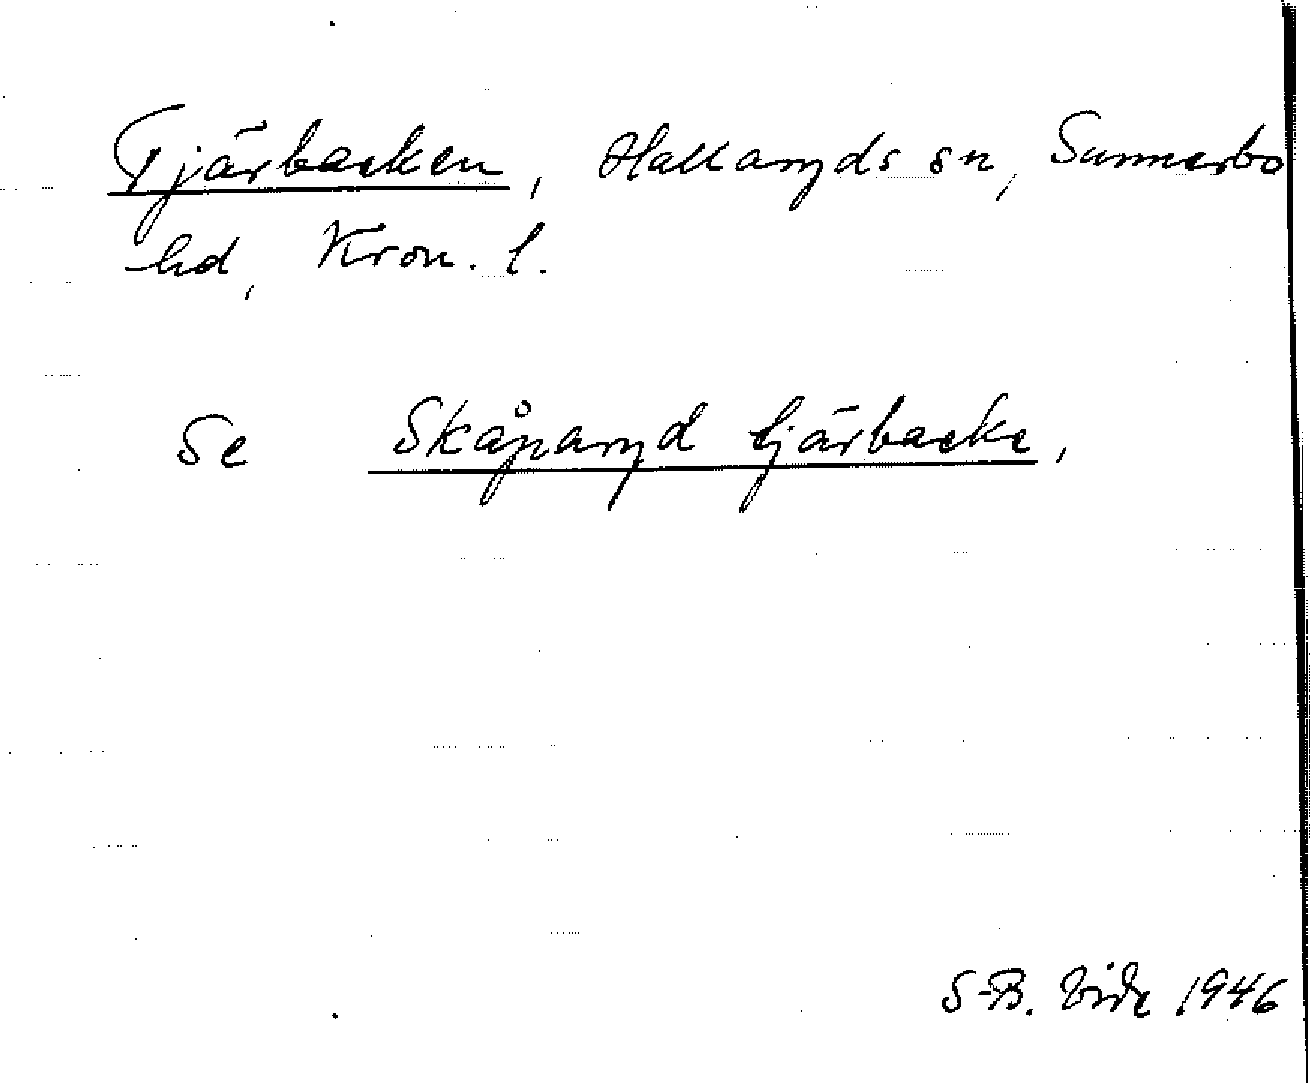 Tjärbacken, Hallaryds sn, Sunnerbo
hd, Kron. l.
Se Skåparyd tjärbacke,
S-B. Vide 1946